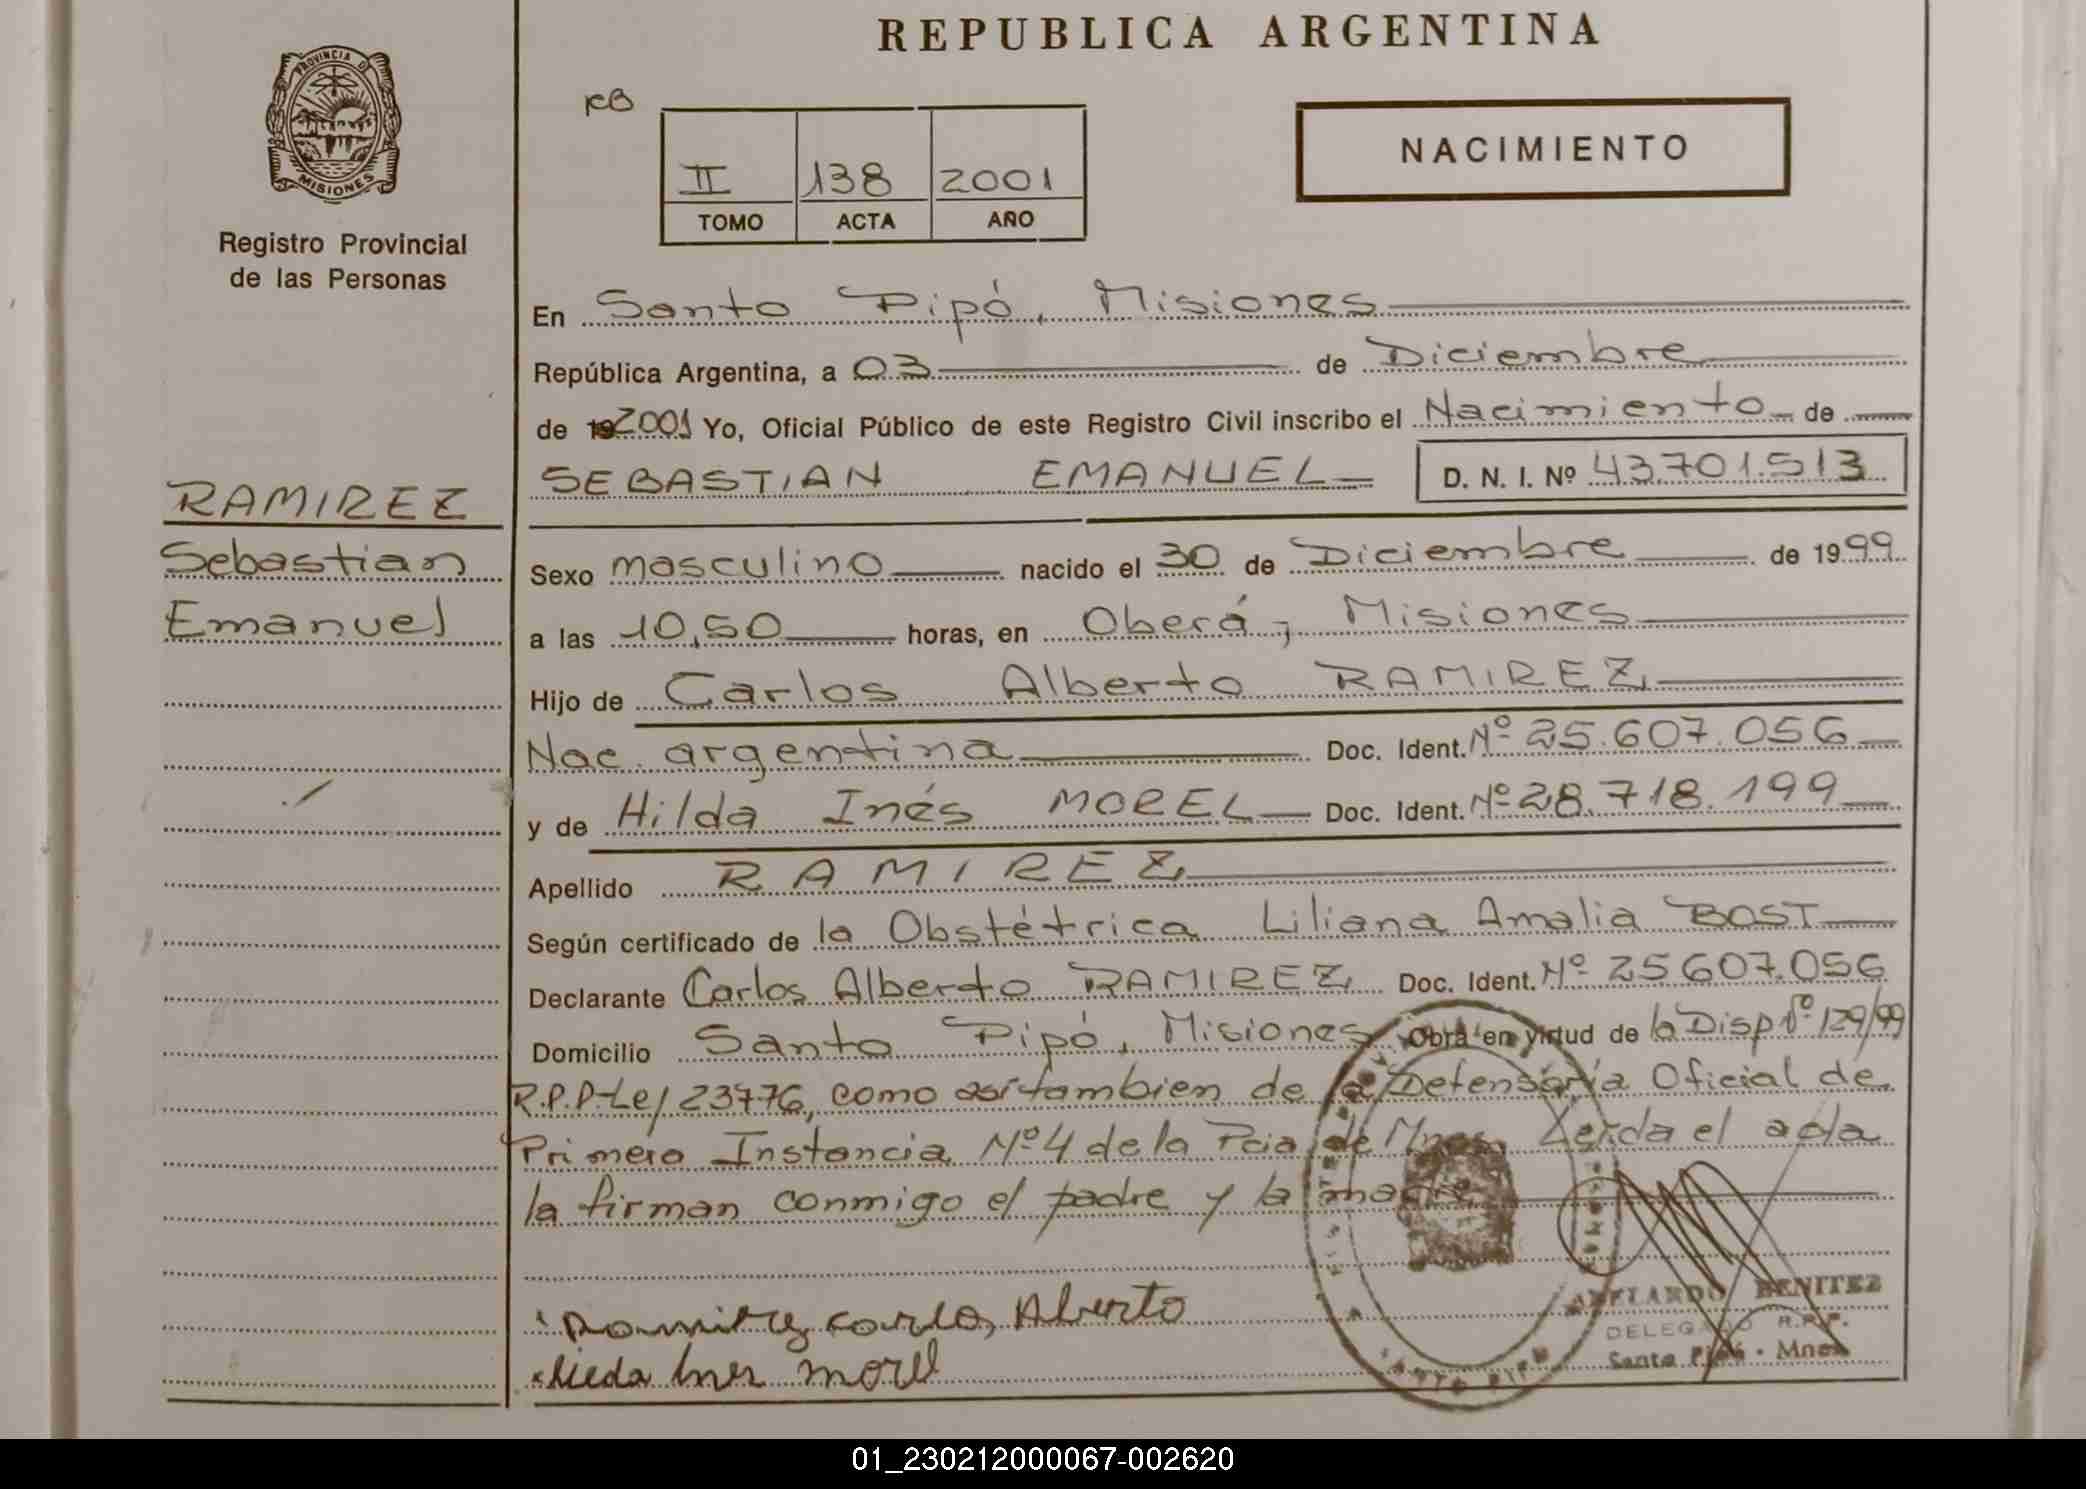 REPUBLICA ARGENTINA
PROVINCIA DE
MISIONES
Registro Provincial
de las Personas
RB
II 138 2001
TOMO ACTA AÑO
NACIMIENTO
En Santo Pipó, Misiones
República Argentina, a 03 de Diciembre
de 19 2001 Yo, Oficial Público de este Registro Civil inscribo el Nacimiento de
SEBASTIAN EMANUEL D. N. I. Nº 43.701.513
RAMIREZ
Sebastian
Emanuel
Sexo masculino nacido el 30 de Diciembre de 1999
a las 10,50 horas, en Oberá, Misiones
Hijo de Carlos Alberto RAMIREZ
Nac. argentina Doc. Ident. Nº 25.607.056
y de Hilda Inés MOREL Doc. Ident. Nº 28.718.199
Apellido RAMIREZ
Según certificado de la Obstétrica Liliana Amalia BOST
Declarante Carlos Alberto RAMIREZ Doc. Ident. Nº 25607.056
Domicilio Santo Pipó, Misiones Obra en virtud de la Disp Nº 129/99
R.P.P-Ley 23776, como asi tambien de la Defensoría Oficial de
Primera Instancia Nº 4 de la Pcia de Mnes. Leida el acta
la firman conmigo el padre y la madre
Ramirez carlos Alberto
Inés morel
ABELARDO BENITEZ
DELEGADO R.P.P.
Santo Pipó - Mnes
SANTO PIPO
01_230212000067-002620